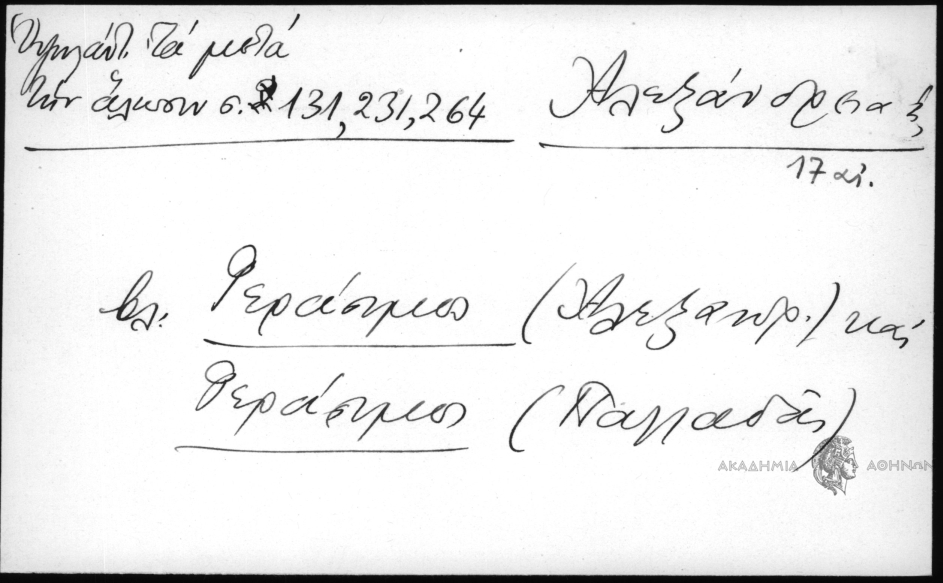 Ὑψηλάντ. Τά μετά
τήν ἅλωσιν σ. 131, 231, 264
Ἀλεξάνδρεια
17 αἰ.
βλ. Γεράσιμος (Ἀλεξανδρ.) καί
Γεράσιμος (Παλλαδᾶς)
ΑΚΑΔΗΜΙΑ ΑΘΗΝΩΝ